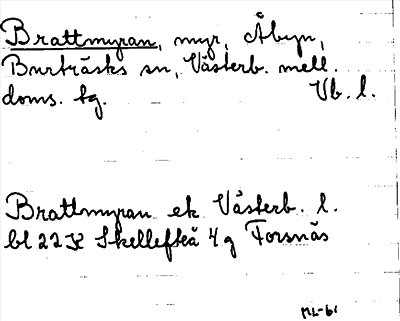 Brattmyran, myr, Åbyn,
Burträsks sn, Västerb. mell.
doms. tg. Vb. l.
Brattmyran ek Västerb. l.
bl 22 K Skellefteå 4g Forsnäs